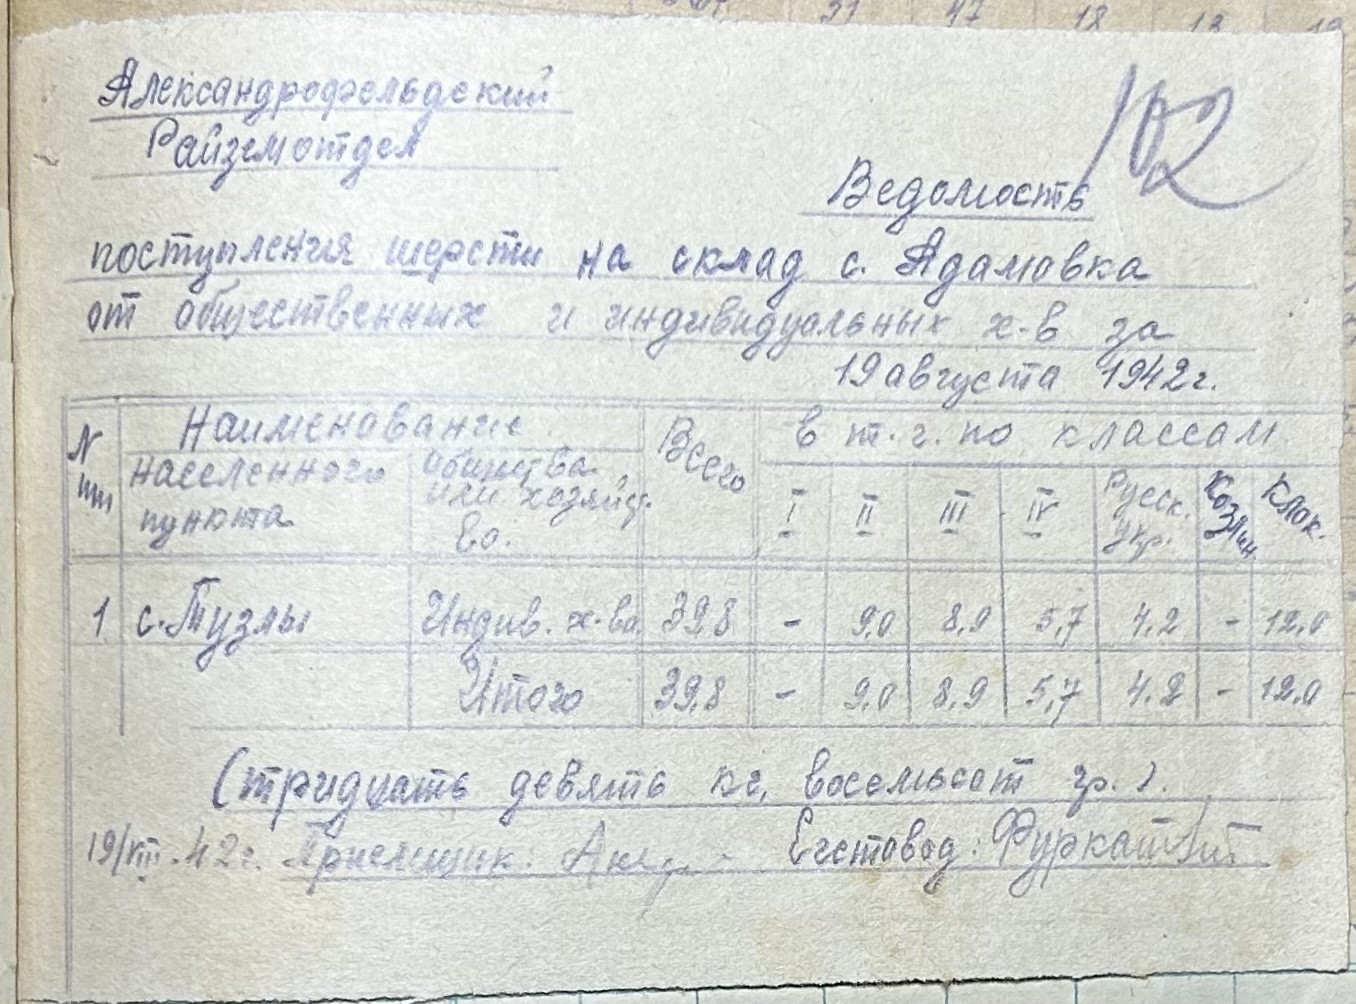 102
Александрофельдский
Райземотдел
Ведомость
поступления шерсти на склад с. Адамовка
от общественных и индивидуальных х-в за
19 августа 1942 г.
N пп Наименование Всего в т. г. по классам
населенного пункта общества или хозяйства. I II III IV Русск. Укр. Козлин. Клок.
1 с. Тузлы Индив. х-ва 39,8 - 9,0 8,9 5,7 4,2 - 12,0
Итого 39,8 - 9,0 8,9 5,7 4,2 - 12,0
(тридцать девять кг, восемьсот гр.).
19/VIII.42 г. Приемщик: Счетовод: